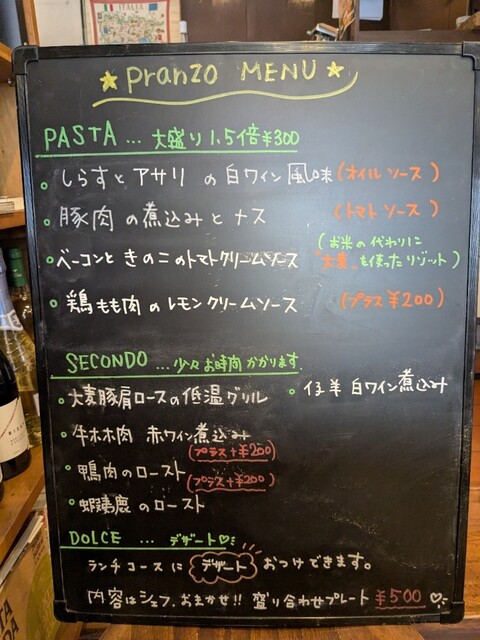 ★ Pranzo MENU ★
PASTA ... 大盛り 1.5倍¥300
・しらすと アサリ の 白ワイン 風味 (オイル ソース)
・豚肉 の 煮込みと ナス (トマト ソース)
・ベーコンと きのこのトマトクリームソース (お米の代わりに "大麦"を使ったリゾット)
・鶏もも肉のレモンクリームソース (プラス ¥200)
SECONDO ... 少々お時間かかります
・大麦豚肩ロースの低温グリル
・仔羊 白ワイン煮込み
・牛ホホ肉 赤ワイン煮込み (プラス+¥200)
・鴨肉のロースト (プラス+¥200)
・蝦夷鹿 のロースト
DOLCE ... デザート♡
ランチコースに デザート おつけできます。
内容はシェフ.おまかせ!! 盛り合わせプレート ¥500 ♡
ITALIE